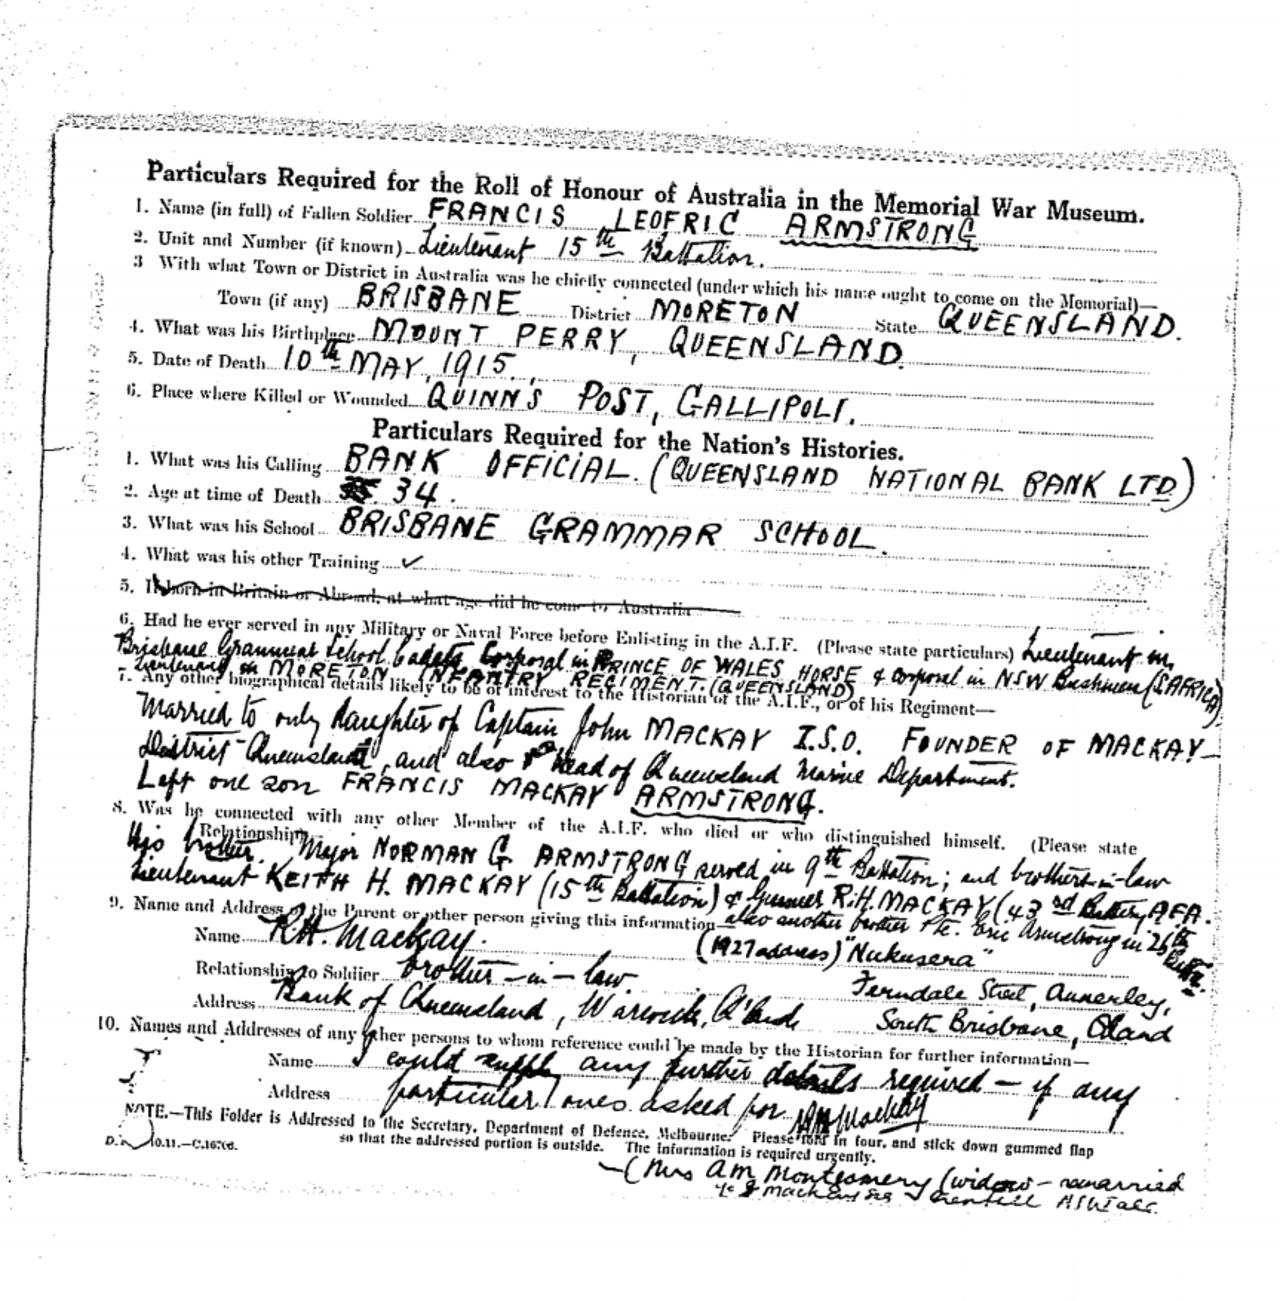 Particulars Required for the Roll of Honour of Australia in the Memorial War Museum.
1. Name (in full) of Fallen Soldier FRANCIS LEOFRIC ARMSTRONG
2. Unit and Number (if known) Lieutenant 15th Battalion.
3 With what Town or District in Australia was he chiefly connected (under which his name ought to come on the Memorial)—
Town (if any) BRISBANE District MORETON State QUEENSLAND.
4. What was his Birthplace MOUNT PERRY, QUEENSLAND.
5. Date of Death 10th MAY, 1915.
6. Place where Killed or Wounded QUINN'S POST, GALLIPOLI.
Particulars Required for the Nation's Histories.
1. What was his Calling BANK OFFICIAL. (QUEENSLAND NATIONAL BANK LTD)
2. Age at time of Death 34.
3. What was his School BRISBANE GRAMMAR SCHOOL.
4. What was his other Training ✓
5. If born in Britain or Abroad, at what age did he come to Australia
6. Had he ever served in any Military or Naval Force before Enlisting in the A.I.F. (Please state particulars) Lieutenant in
Brisbane Grammar School Cadets Corporal in PRINCE OF WALES HORSE & Corporal in NSW Bushmen (S AFRICA)
- Lieutenant in MORETON INFANTRY REGIMENT. (QUEENSLAND)
7. Any other biographical details likely to be of interest to the Historian of the A.I.F., or of his Regiment—
Married to only daughter of Captain John MACKAY I.S.O. FOUNDER OF MACKAY—
District Queensland, and also Head of Queensland Marine Department.
Left one son FRANCIS MACKAY ARMSTRONG.
8. Was he connected with any other Member of the A.I.F. who died or who distinguished himself. (Please state
Relationship)
His brother. Major NORMAN G. ARMSTRONG served in 9th Battalion; and brothers-in-law
Lieutenant KEITH H. MACKAY (15th Battalion) & Gunner R.H. MACKAY (43rd Battery A.F.A.
also another brother Pte. Eric Armstrong in 26th Battn.
9. Name and Address of the Parent or other person giving this information—
Name R.H. Mackay. (1927 address) "Nukusera"
Relationship to Soldier brother-in-law. Ferndale Street, Annerley,
Address Bank of Queensland, Warwick, Q'land South Brisbane, Qland
10. Names and Addresses of any other persons to whom reference could be made by the Historian for further information—
Name I could supply any further details required — if any
Address particular ones asked for RHMackay
NOTE.—This Folder is Addressed to the Secretary, Department of Defence, Melbourne. Please fold in four, and stick down gummed flap
so that the addressed portion is outside. The information is required urgently.
(Mrs A M Montgomery (widow - remarried
Grenfell NSW